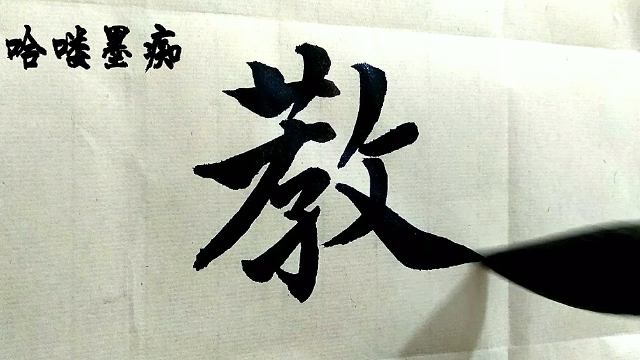 哈喽墨痴
教